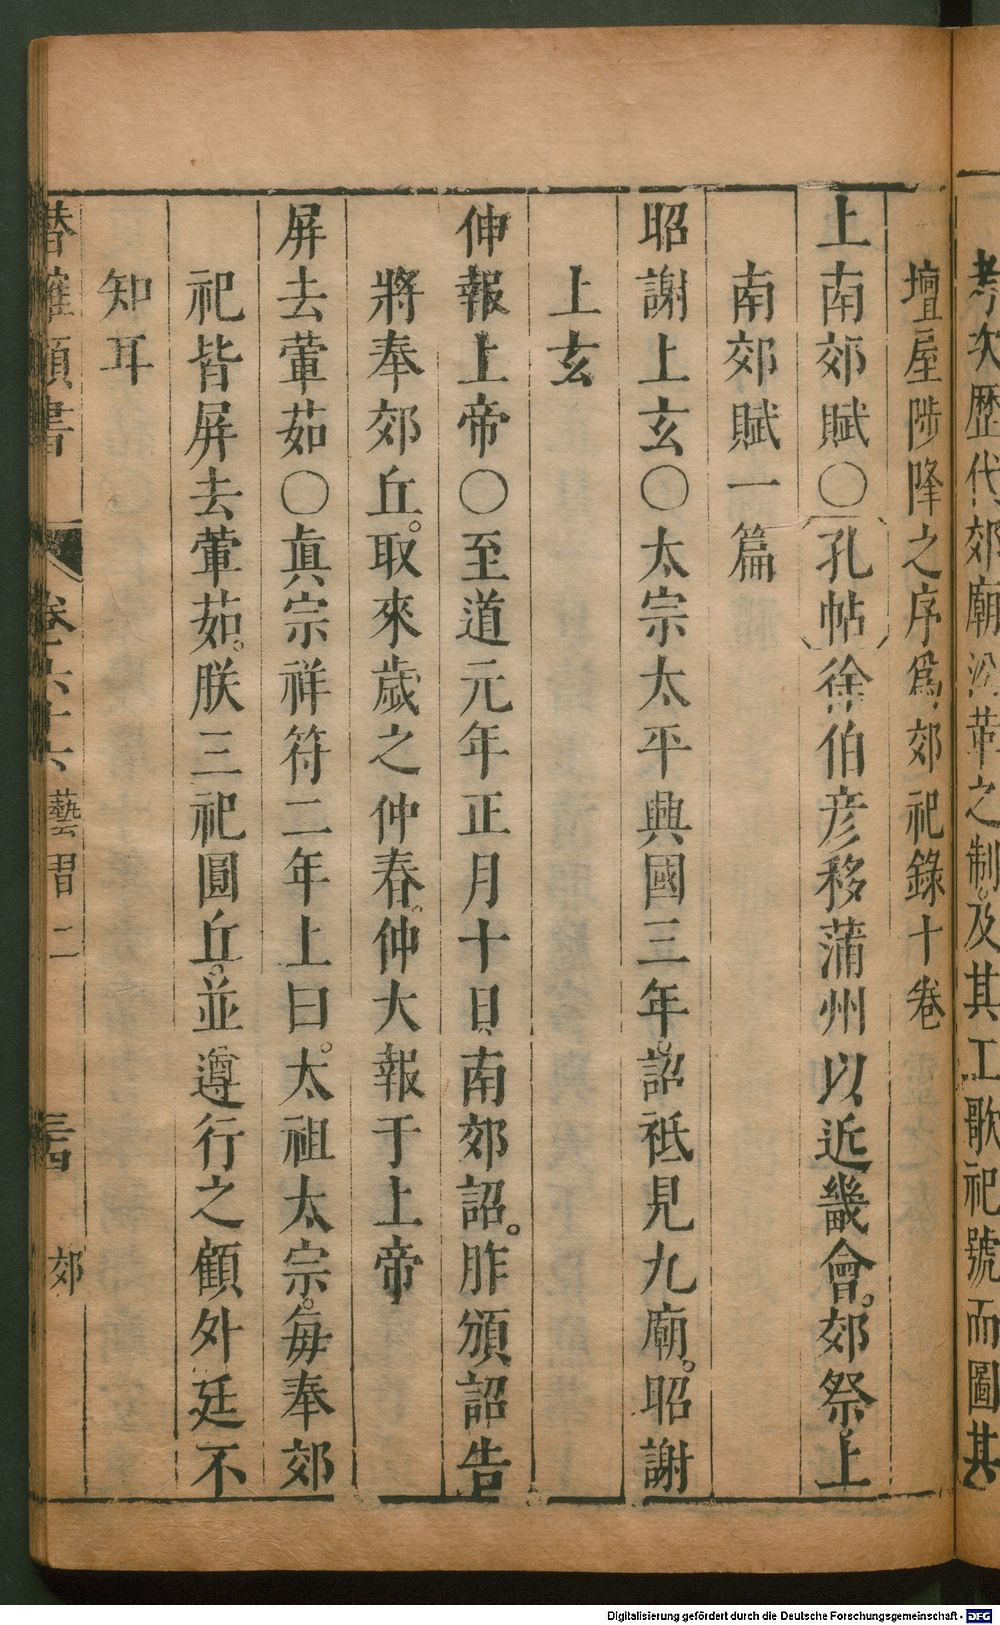 考次歷代郊廟沿革之制。及其工歌祀號而圖其
壇屋陟降之序爲郊祀錄十卷
上南郊賦〇孔帖徐伯彦移蒲州以近畿會。郊祭上
南郊賦一篇
昭謝上玄〇太宗太平興國三年。詔祗見九廟。昭謝
上玄
伸報上帝〇至道元年正月十日南郊詔。胙頒詔告
將奉郊丘。取來歲之仲春。伸大報于上帝
屏去葷茹〇眞宗祥符二年上曰。太祖太宗。每奉郊
祀皆屏去葷茹。朕三祀圓丘。並遵行之顧外廷不
知耳
潛確類書 卷六十六 藝習二 三四 郊
Digitalisierung gefördert durch die Deutsche Forschungsgemeinschaft - DFG